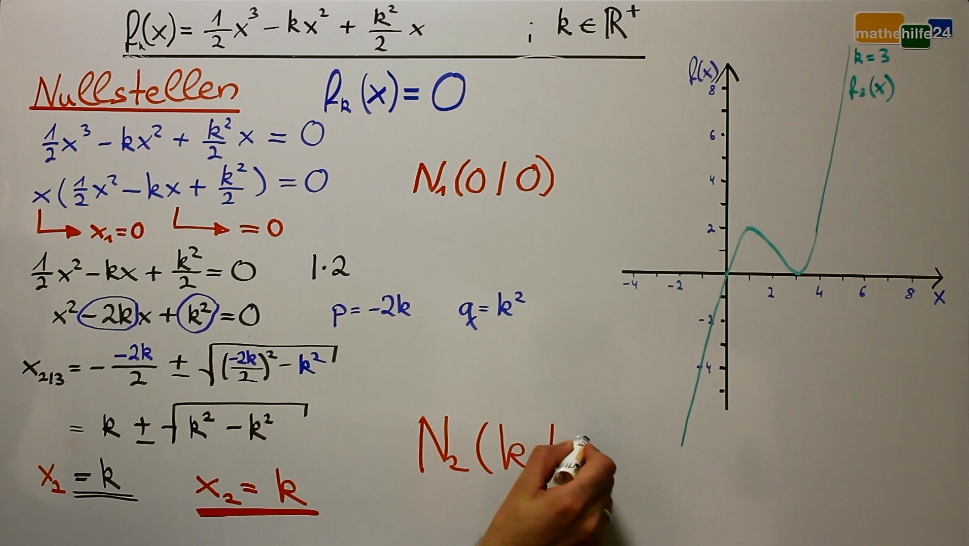 fₖ(x) = 1/2 x³ - kx² + k²/2 x ; k ∈ ℝ⁺
mathehilfe24
Nullstellen
fₖ(x) = 0
1/2 x³ - kx² + k²/2 x = 0
x(1/2 x² - kx + k²/2) = 0
N₁(0/0)
x₁=0
= 0
1/2 x² - kx + k²/2 = 0 |·2
x² - 2kx + k² = 0
p = -2k
q = k²
x₂/₃ = - -2k/2 ± √((-2k/2)² - k²)
= k ± √(k² - k²)
x₂ = k
x₂ = k
N₂(k|
k=3
f₃(x)
f(x)
8
6
4
2
-4 -2 2 4 6 8
x
-2
-4